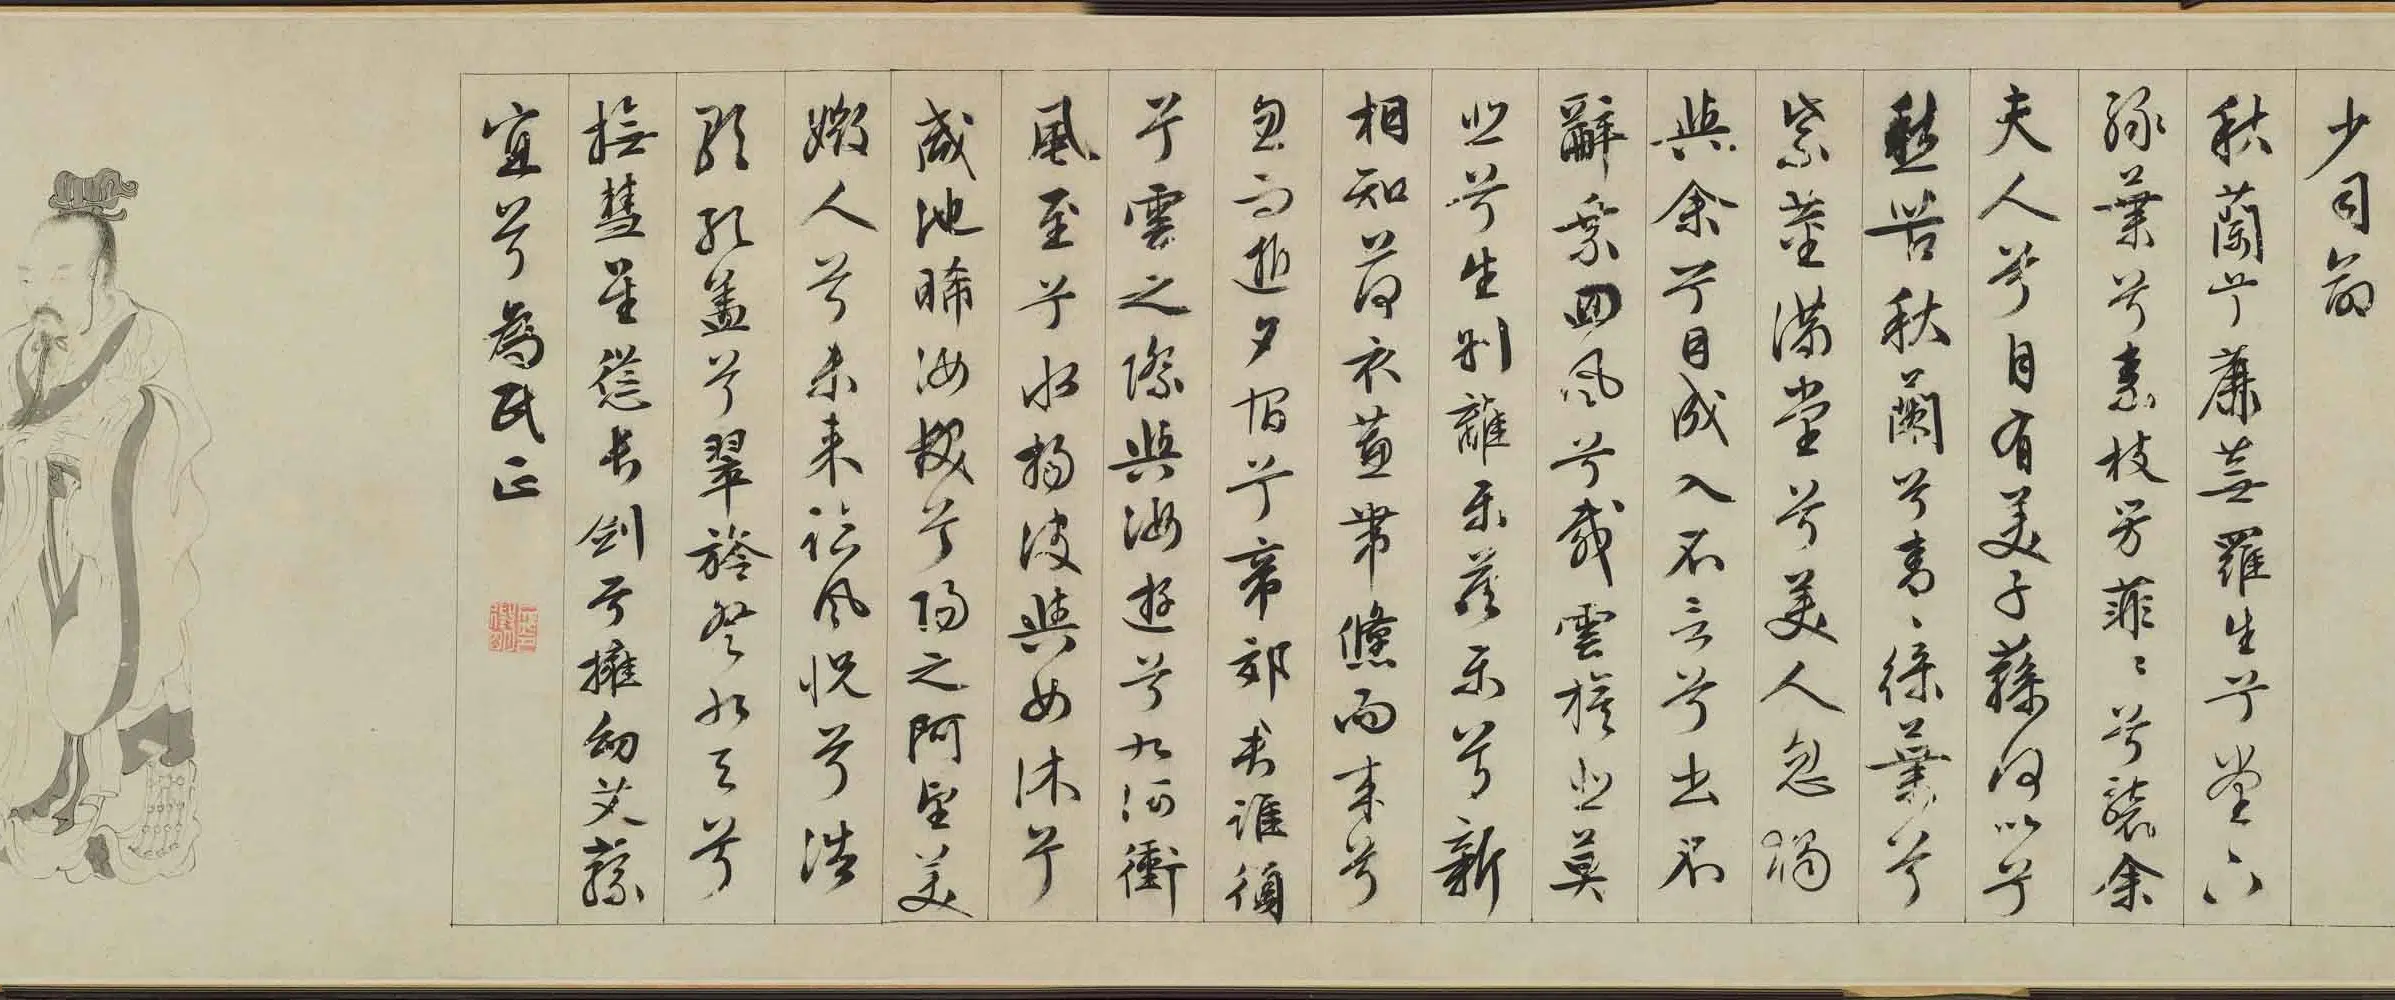 少司命
秋蘭兮麋蕪羅生兮堂下
綠葉兮素枝芳菲〻兮襲余
夫人兮自有美子蓀何以兮
愁苦秋蘭兮青〻綠葉兮
紫莖滿堂兮美人忽獨
與余兮目成入不言兮出不
辭乘回風兮載雲旗悲莫
悲兮生別離樂莫樂兮新
相知荷衣蕙帶儵而來兮
忽而逝夕宿兮帝郊君誰須
兮雲之際與汝遊兮九河衝
風至兮水揚波與女沐兮
咸池晞汝髮兮陽之阿望美
媺人兮未來臨風怳兮浩
歌孔蓋兮翠旌登九天兮
撫彗星慫長劍兮擁幼艾蓀
宜兮為民正